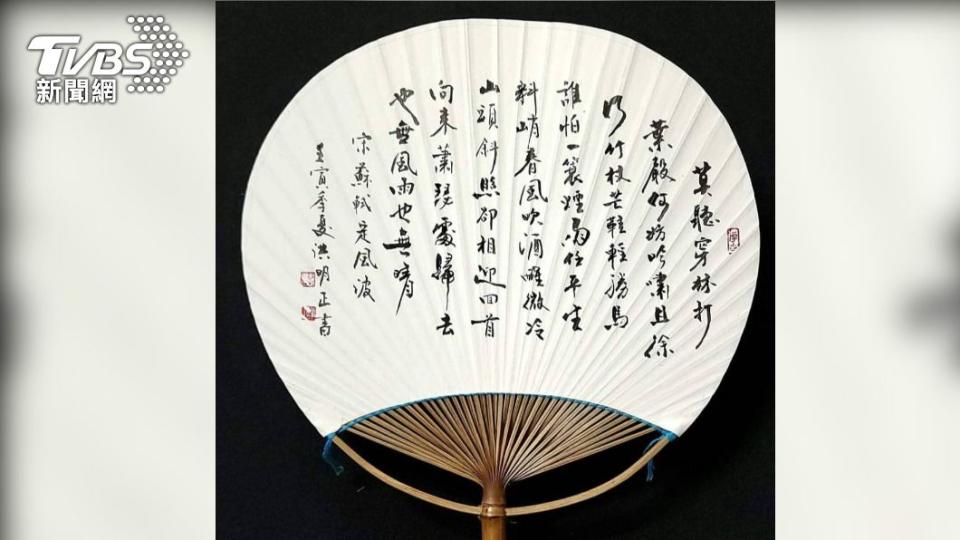 TVBS
新聞網
莫聽穿林打
葉聲何妨吟嘯且徐
行竹杖芒鞋輕勝馬
誰怕一簑煙雨任平生
料峭春風吹酒醒微冷
山頭斜照卻相迎回首
向來蕭瑟處歸去
也無風雨也無晴
宋蘇軾定風波
壬寅季夏洪明正書